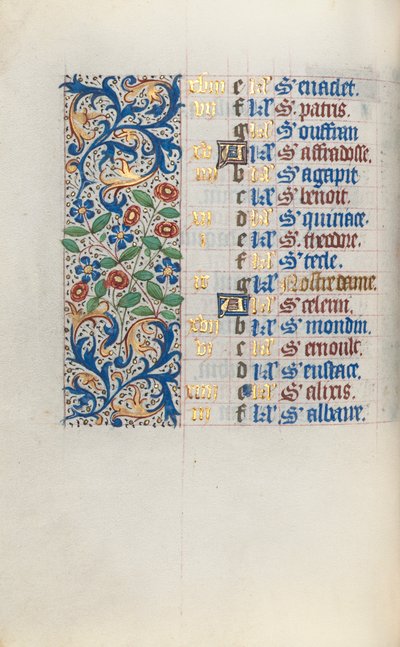 xviii e kl' S' enaclet.
vii f kl' S' patris.
g kl' S' ouffian
xv A kl' S' affradosse.
iiii b kl' S' agapit
c kl' S' benoit.
xii d kl' S' quinace.
i e kl' S' tieodne.
f kl' S' tecle.
ix g kl' Nostre dame.
A kl' S' celerin.
xvii b kl' S' mondin.
vi c kl' S' ernoult.
d kl' S' eustace.
xiiii e kl' S' alixis.
iii f kl' S' albane.